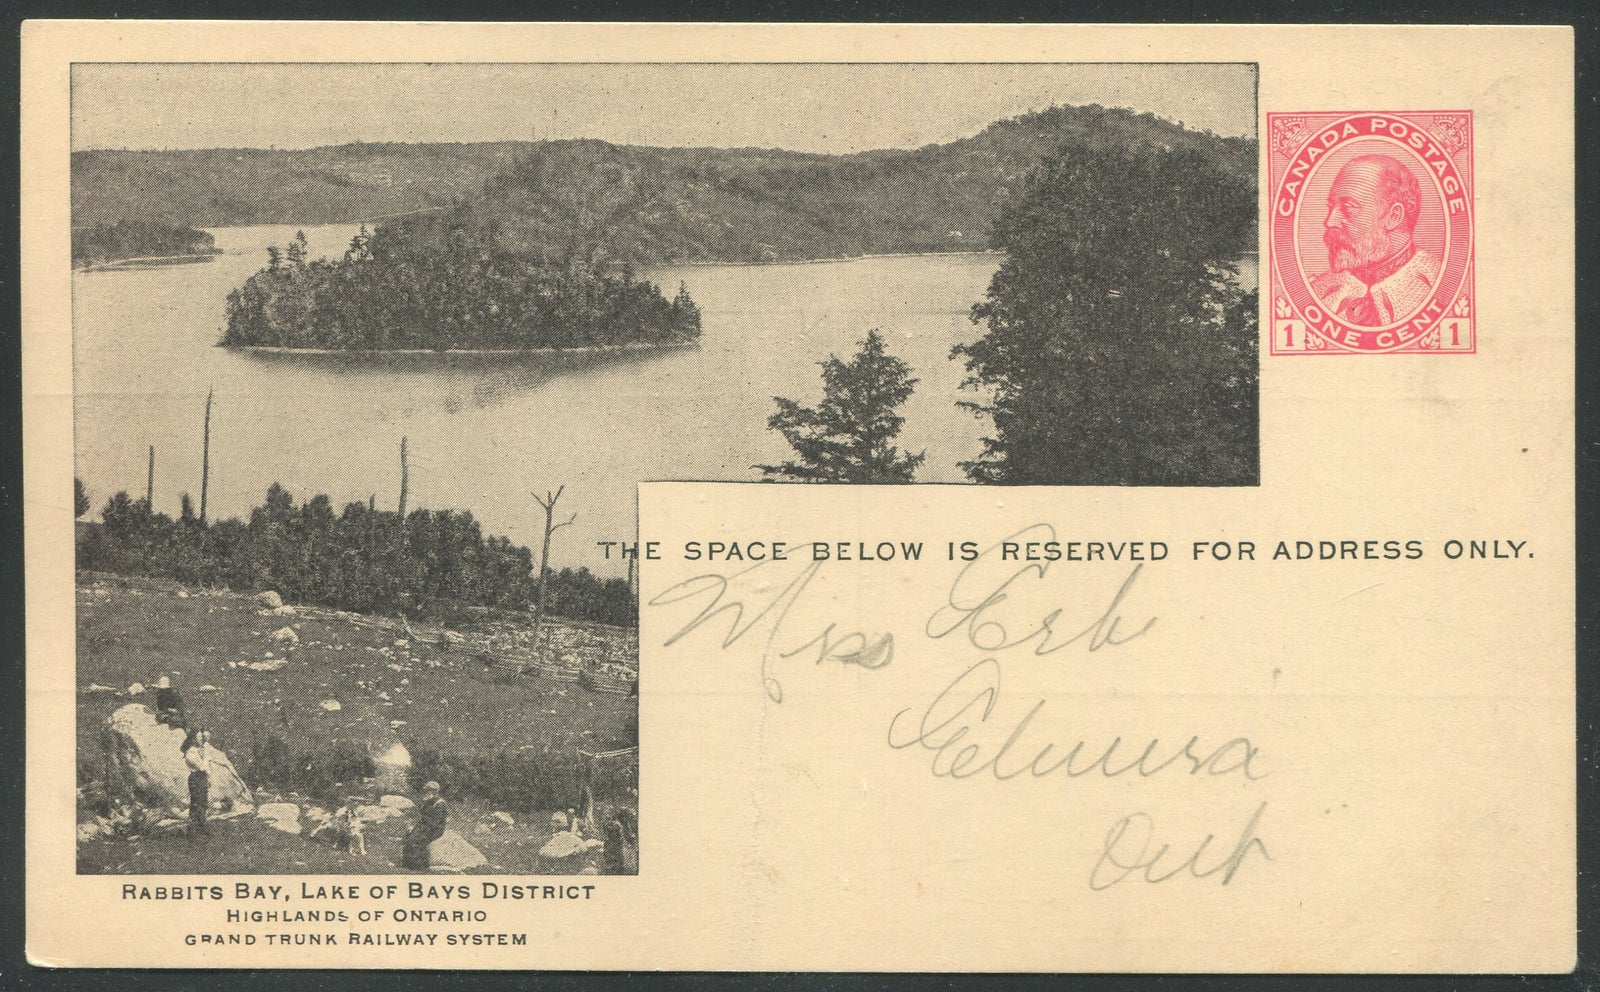 CANADA POSTAGE
1 ONE CENT 1
THE SPACE BELOW IS RESERVED FOR ADDRESS ONLY.
Miss Erb
Elmira
Ont
RABBITS BAY, LAKE OF BAYS DISTRICT
HIGHLANDS OF ONTARIO
GRAND TRUNK RAILWAY SYSTEM